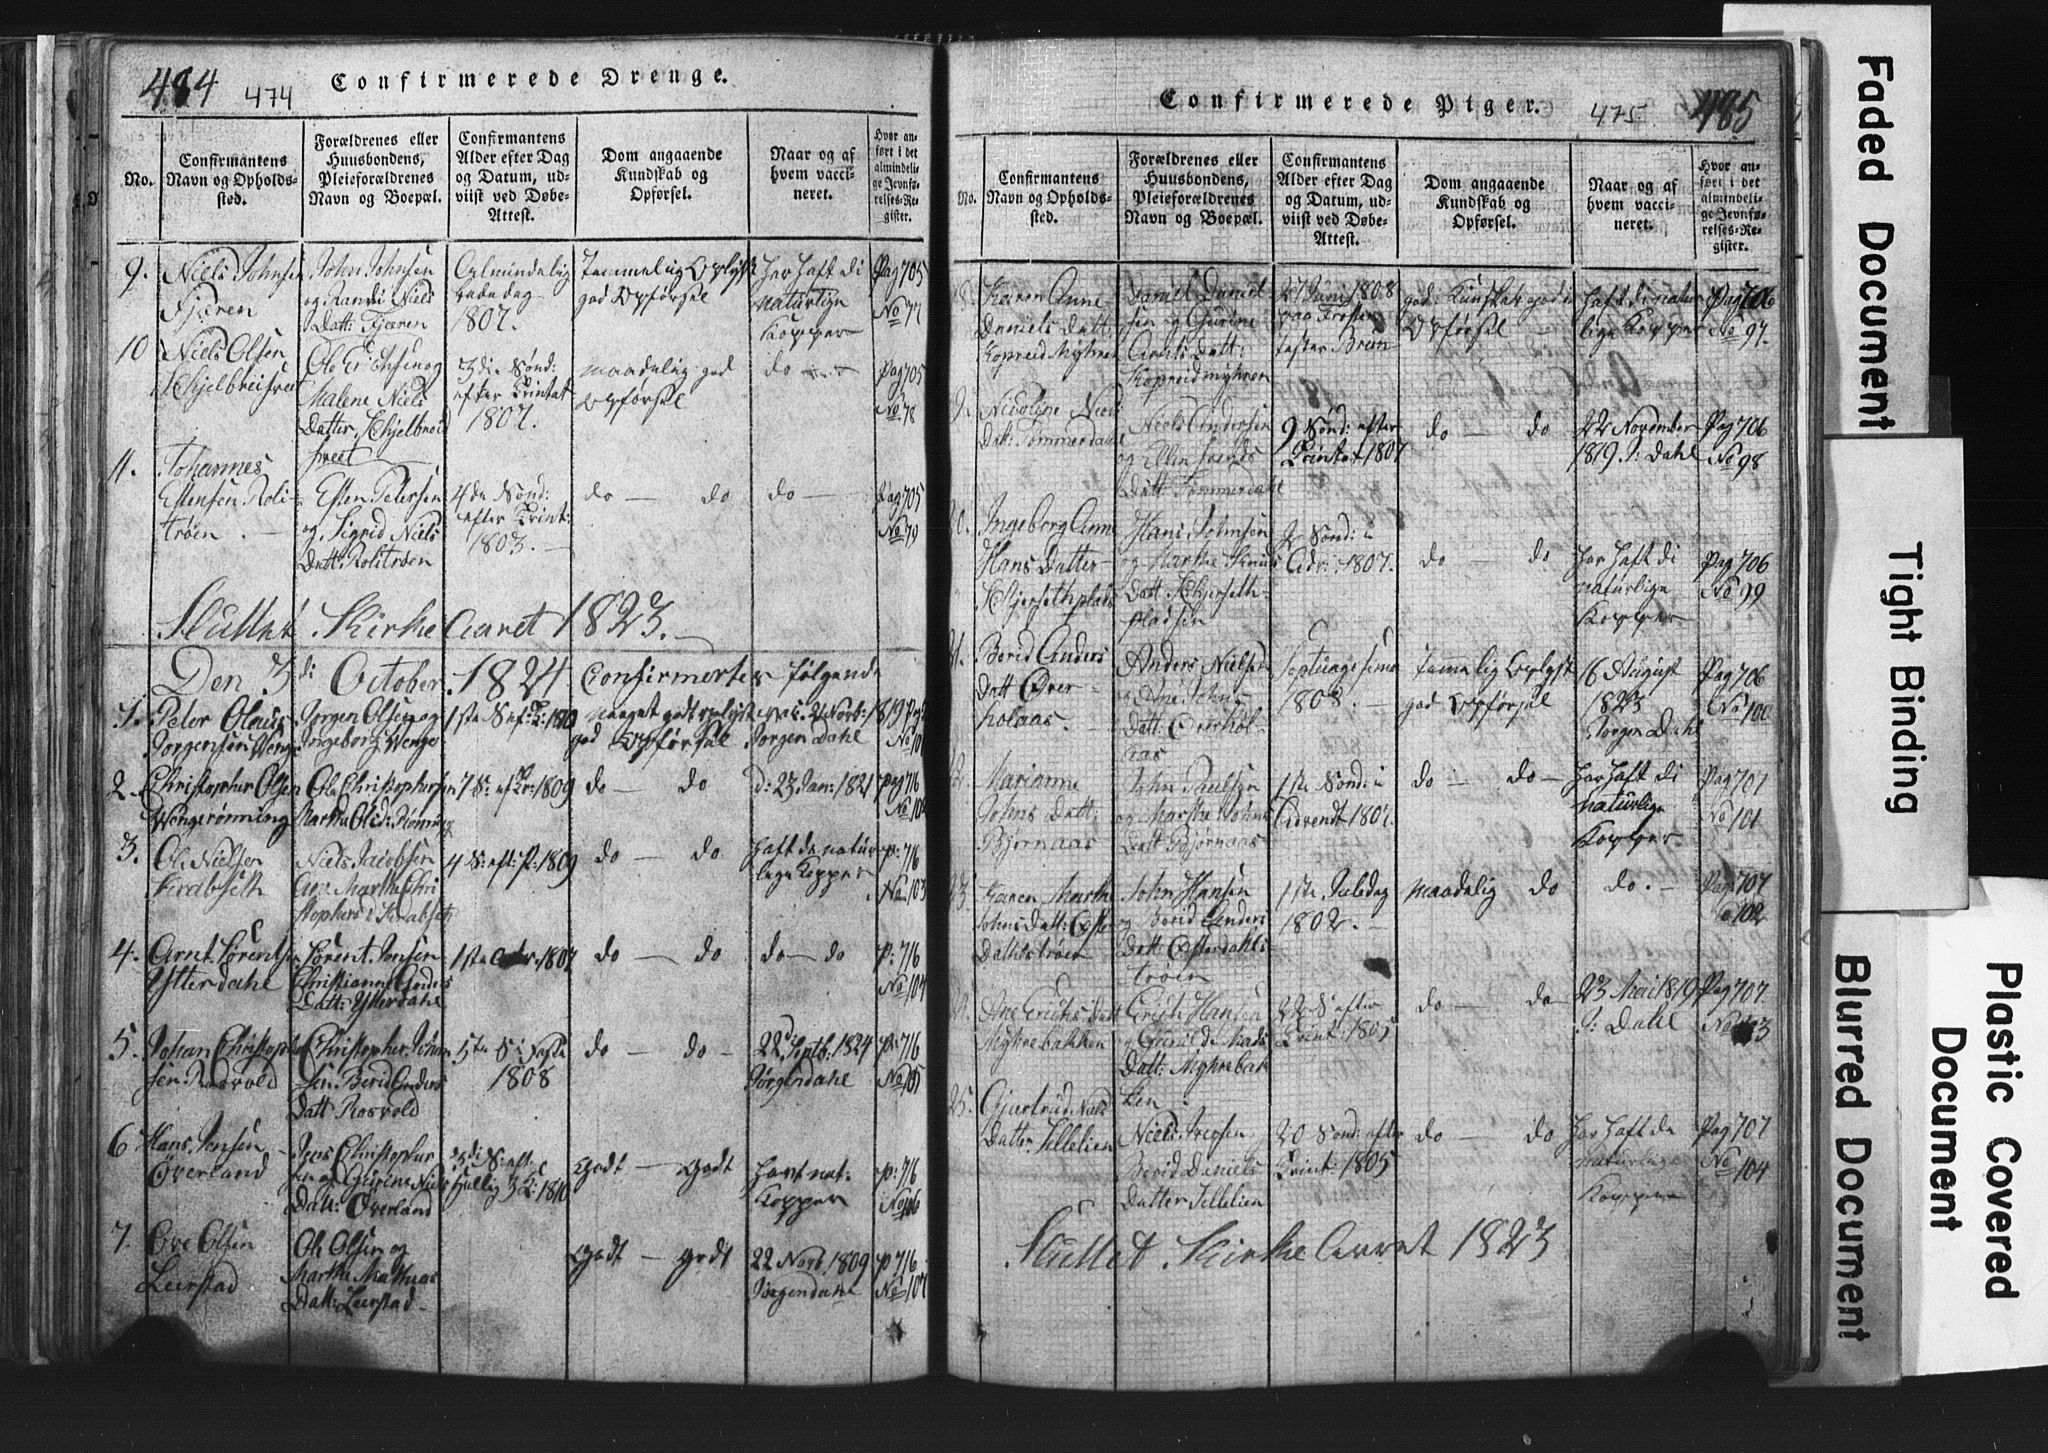 484 474 Confirmerede Drenge.
No.
Confirmantens
Navn og Opholds-
sted.
Forældrenes eller
Huusbondens,
Pleieforældrenes
Navn og Boepæl.
Confirmantens
Alder efter Dag
og Datum, ud-
viist ved Døbe-
Attest.
Dom angaaende
Kundskab og
Opførsel.
Naar og af
hvem vacci-
neret.
Hvor an-
ført i det
almindeli-
ge Jevnfø-
relses-Re-
gister.
9. Niels Johnsen
Fjæren
John Johnsen
og Randi Niels
Datt: Fjæren
Almindelig
bededag
1807.
Temmelig Oplyst
god Opførsel
har haft di
naturlige
Kopper
Pag 705
No 77
10 Niels Olsen
Ole Erichsen og
Malene Niels
Datter
3die Sønd:
efter Trinitat
1807.
maadelig god
Opførsel
do
Pag 705
No 78
11. Johannes
Estensen Roli-
trøen
Esten Petersen
og Sigrid Niels
Datt: Rolitrøen
4de Sønd:
efter Trint:
1803.
do — do
do —
Pag 705
No 79
Sluttet Kirke Aaret 1823.
Den 3di October 1824 Confirmertes følgende
1. Peter Olaus
Jørgensen Wenge
Jørgen Olsen og
Ingeborg Wenge
meget godt oplyst
god Opførsel
Jørgen Dahl
2. Christopher Olsen
Wengerønning
Ole Christophersen
7 S: ef Tr: 1809
do — do
D: 23 Jan: 1821
pag 716
No 102
3. Ole Nielsen
Krabseth
Niels Jacobsen
og Marthe Chri
stophers d Krabseth
4 S: eft: P: 1809
do — do
haft de natur
lige Kopper
p: 716
No 103
4. Arnt Sørentsen
Ytterdahl
Sørent Jensen
Christianne Anders
Datt: Ytterdahl
1ste Adv: 1807
do — do
do — do
p: 716
No 104
5. Johan Christoph
sen Rosvold
Christopher Johan
sen Berid Anders
Datt Rosvold
5te S: i Faste
1808
do — do —
22 Septb: 1824
Jørgen Dahl
p: 716
No 105
6 Hans Jensen
Overland
Jens Christopher
sen og Gurine Niels
Datt: Overland
3di S: eft
hellig 3 K: 1810
Godt — Godt
havt nat.
Kopper
p: 716
No 106
7. Ove Olsen
Leerstad
Ole Olsen og
Marthe Mathias
Datt: Leerstad
Godt — godt
22 Novb. 1809
Jørgen Dahl
p 716
No 107
Confirmerede Piger. 475 485
No.
Confirmantens
Navn og Opholds-
sted.
Forældrenes eller
Huusbondens,
Pleieforældrenes
Navn og Boepæl.
Confirmantens
Alder efter Dag
og Datum, ud-
viist ved Døbe-
Attest.
Dom angaaende
Kundskab og
Opførsel.
Naar og af
hvem vacci-
neret.
Hvor an-
ført i det
almindeli-
ge Jevnfø-
relses-Re-
gister.
Karen Anne
Daniels Datt:
Kopreidmyhren
Daniel Daniel
sen og Gurine
Arnts Datt:
Kopreidmyhren
27 Juni 1808
god Kundskab god
Opførsel
haft di natur
lige Kopper
Pag 706
No 97.
Nicoline Niels
Datt: Tømmerdahl
Niels Andersen
og Ellen Svends
Datt: Tømmerdahl
9 Sønd: efter
Trinitat 1807
do — do
22 November
1819 J: Dahl
Pag 706
No 98
20. Ingeborg Anne
Hans Datter
Hans Johnsen
og Marthe
2 Sønd: i
Adv: 1807.
do — do
har haft di
naturlige
Kopper
Pag 706
No 99
21. Berid Anders
Datt Over-
holaas.
Anders Nielsen
og Ane Johns
Datt: Overhol-
aas
Septuagesima
1808.
Temelig Oplyst
god Opførsel
6 August
1823
Jørgen Dahl
Pag 706
No 100
Marianne
Johns Datt:
Bjørnaas
John Paulsen
og Marthe Johns
Datt Bjørnaas
1ste Sønd: i
Advendt 1807.
do — do —
har haft di
naturlige
Kopper
Pag 707
No 101
23. Karen Marthe
Johns Datt: Øster
Dahlstrøen
John Hansen
og Berid Anders
Datt: Østerdahls-
trøen
1ste Juledag
1802. —
Maadelig do
do. —
Pag 707
No 102
24. Ane Erichs Datt
Myhrebakken
Erich Hansen
og Gunild Mads
Datt: Myhrebak
ken
22 S: efter
Trint: 1805
do — do
23 Mai 1819
J: Dahl
Pag 707.
25. Gjertrud Niels
Datter Tellelien
Niels Iversen
Berid Daniels
Datter Tellelien
20 Sønd: efter
Trint: 1805
do — do
har haft de
naturlige
Kopper
Pag 707
No 104
Sluttet Kirke Aaret 1823
Faded Document
Tight Binding
Blurred Document
Plastic Covered
Document